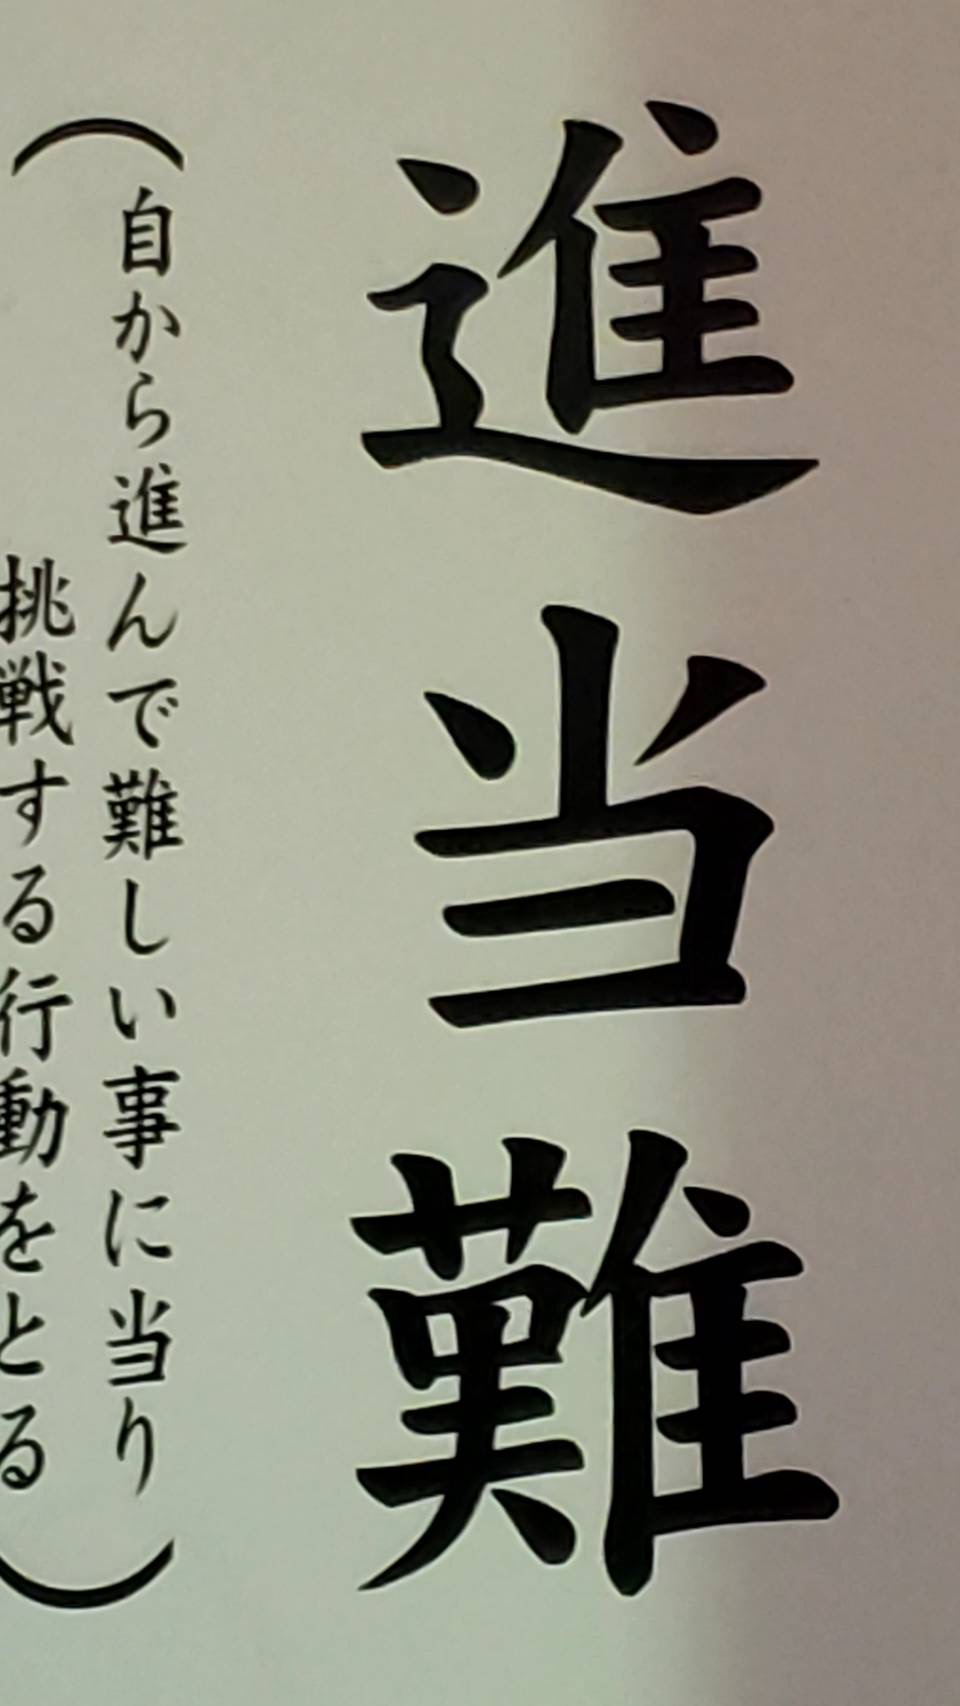 進当難
（自から進んで難しい事に当り
挑戦する行動をとる）